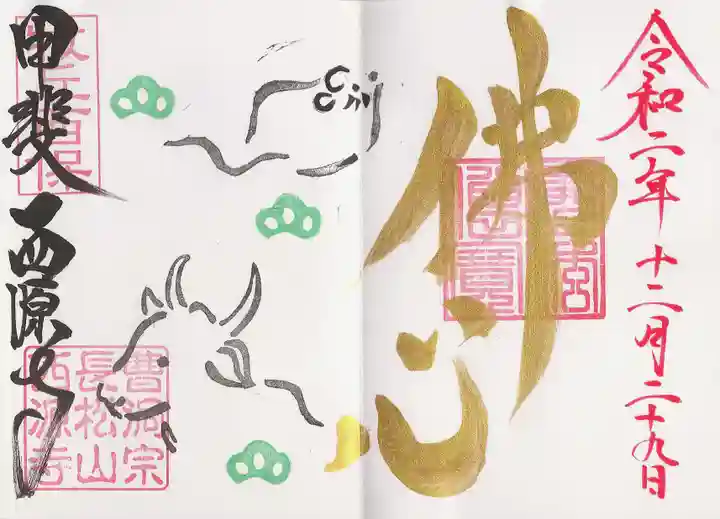 令和二年十二月二十九日
佛心
甲斐 西源寺
曹洞宗
長松山
西源寺